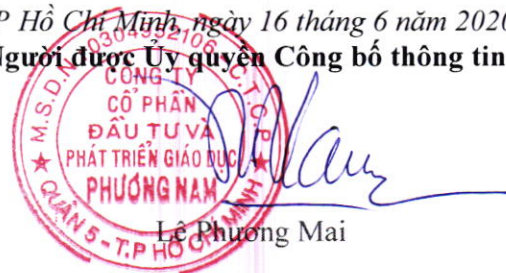 P Hồ Chí Minh, ngày 16 tháng 6 năm 2020
Người được Ủy quyền Công bố thông tin
M.S.D.N: 0304952106 - C.T.C.P
CÔNG TY
CỔ PHẦN
ĐẦU TƯ VÀ
PHÁT TRIỂN GIÁO DỤC
PHƯƠNG NAM
QUẬN 5 - T.P HỒ CHÍ MINH
Lê Phương Mai